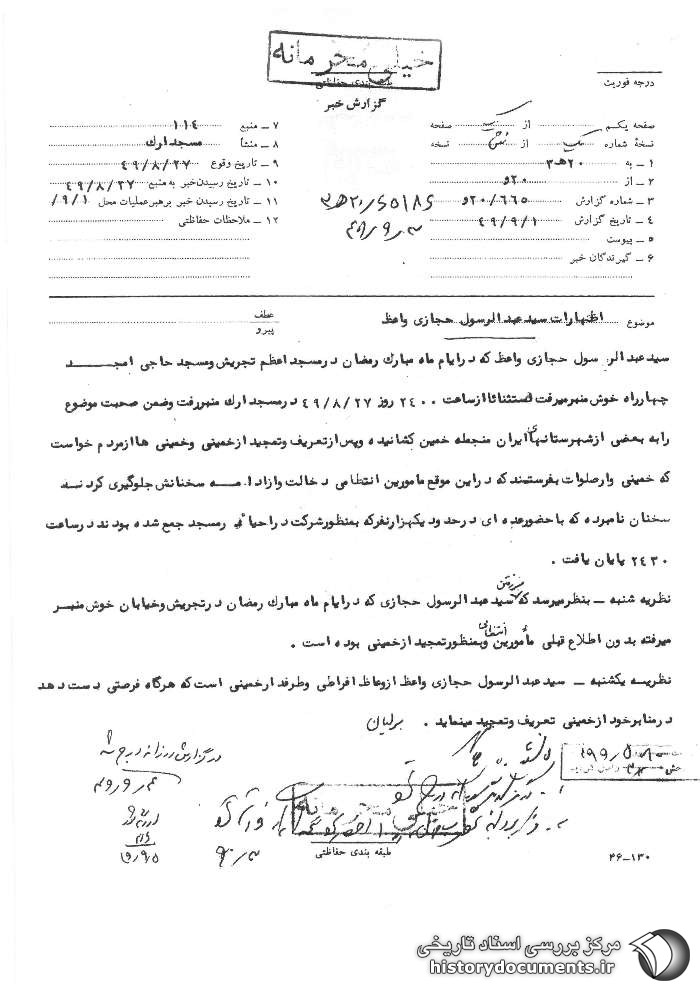 خیلی محرمانه
طبقه بندی حفاظتی
گزارش خبر
درجه فوریت
صفحه یکم از یک صفحه
نسخهٔ شماره یک از شش نسخه
۱ ـ به ۲۰هـ۳
۲ ـ از ۲۰و
۳ ـ شماره گزارش ۲۰/۶۶۵و
۴ ـ تاریخ گزارش ۴۹/۹/۱
۵ ـ پیوست
۶ ـ گیرندگان خبر
۷ ـ منبع ۱۱۴
۸ ـ منشأ مسجد ارک
۹ ـ تاریخ وقوع ۴۹/۸/۲۷
۱۰ ـ تاریخ رسیدن خبر به منبع ۴۹/۸/۲۷
۱۱ ـ تاریخ رسیدن خبر برهبر عملیات محل ۹/۱/
۱۲ ـ ملاحظات حفاظتی
موضوع اظهارات سید عبدالرسول حجازی واعظ
عطف
پیرو
سید عبدالرسول حجازی واعظ که در ایام ماه مبارک رمضان در مسجد اعظم تجریش و مسجد حاجی امجد
چهارراه خوش منبر میرفت استثنائا از ساعت ۲۴۰۰ روز ۴۹/۸/۲۷ در مسجد ارک منبر رفت و ضمن صحبت موضوع
را به بعضی از شهرستانهای ایران منجمله خمین کشانیده و پس از تعریف و تمجید از خمینی و خمینی ها از مردم خواست
که خمینی وار صلوات بفرستید که در این موقع مامورین انتظامی دخالت و از ادامه سخنانش جلوگیری کردند
سخنان نامبرده که با حضور عده ای در حدود یکهزار نفر که بمنظور شرکت در احیا در مسجد جمع شده بودند در ساعت
۲۴۳۰ پایان یافت .
نظریه شنبه ـ بنظر میرسد که منبر رفتن سید عبدالرسول حجازی که در ایام ماه مبارک رمضان در تجریش و خیابان خوش منبر
میرفته بدون اطلاع قبلی مأمورین انتظامی و بمنظور تمجید از خمینی بوده است .
نظریه یکشنبه ـ سید عبدالرسول حجازی واعظ از وعاظ افراطی و طرفدار خمینی است که هرگاه فرصتی دست دهد
در منابر خود از خمینی تعریف و تمجید مینماید .
در گزارش روزانه درج شد
خیلی محرمانه
طبقه بندی حفاظتی
۴۶-۱۳۰
مرکز بررسی اسناد تاریخی
historydocuments.ir